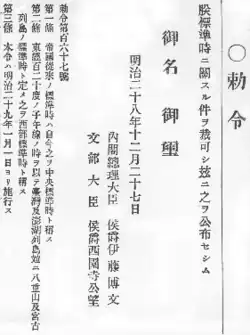 〇勅令
朕標準時ニ關スル件ヲ裁可シ玆ニ之ヲ公布セシム
御名御璽
明治二十八年十二月二十七日
內閣總理大臣 侯爵伊藤博文
文部大臣 侯爵西園寺公望
勅令第百六十七號
第一條 帝國從來ノ標準時ハ自今之ヲ中央標準時ト稱ス
第二條 東經百二十度ノ子午線ノ時ヲ以テ臺灣及澎湖列島竝ニ八重山及宮古
列島ノ標準時ト定メ之ヲ西部標準時ト稱ス
第三條 本令ハ明治二十九年一月一日ヨリ施行ス